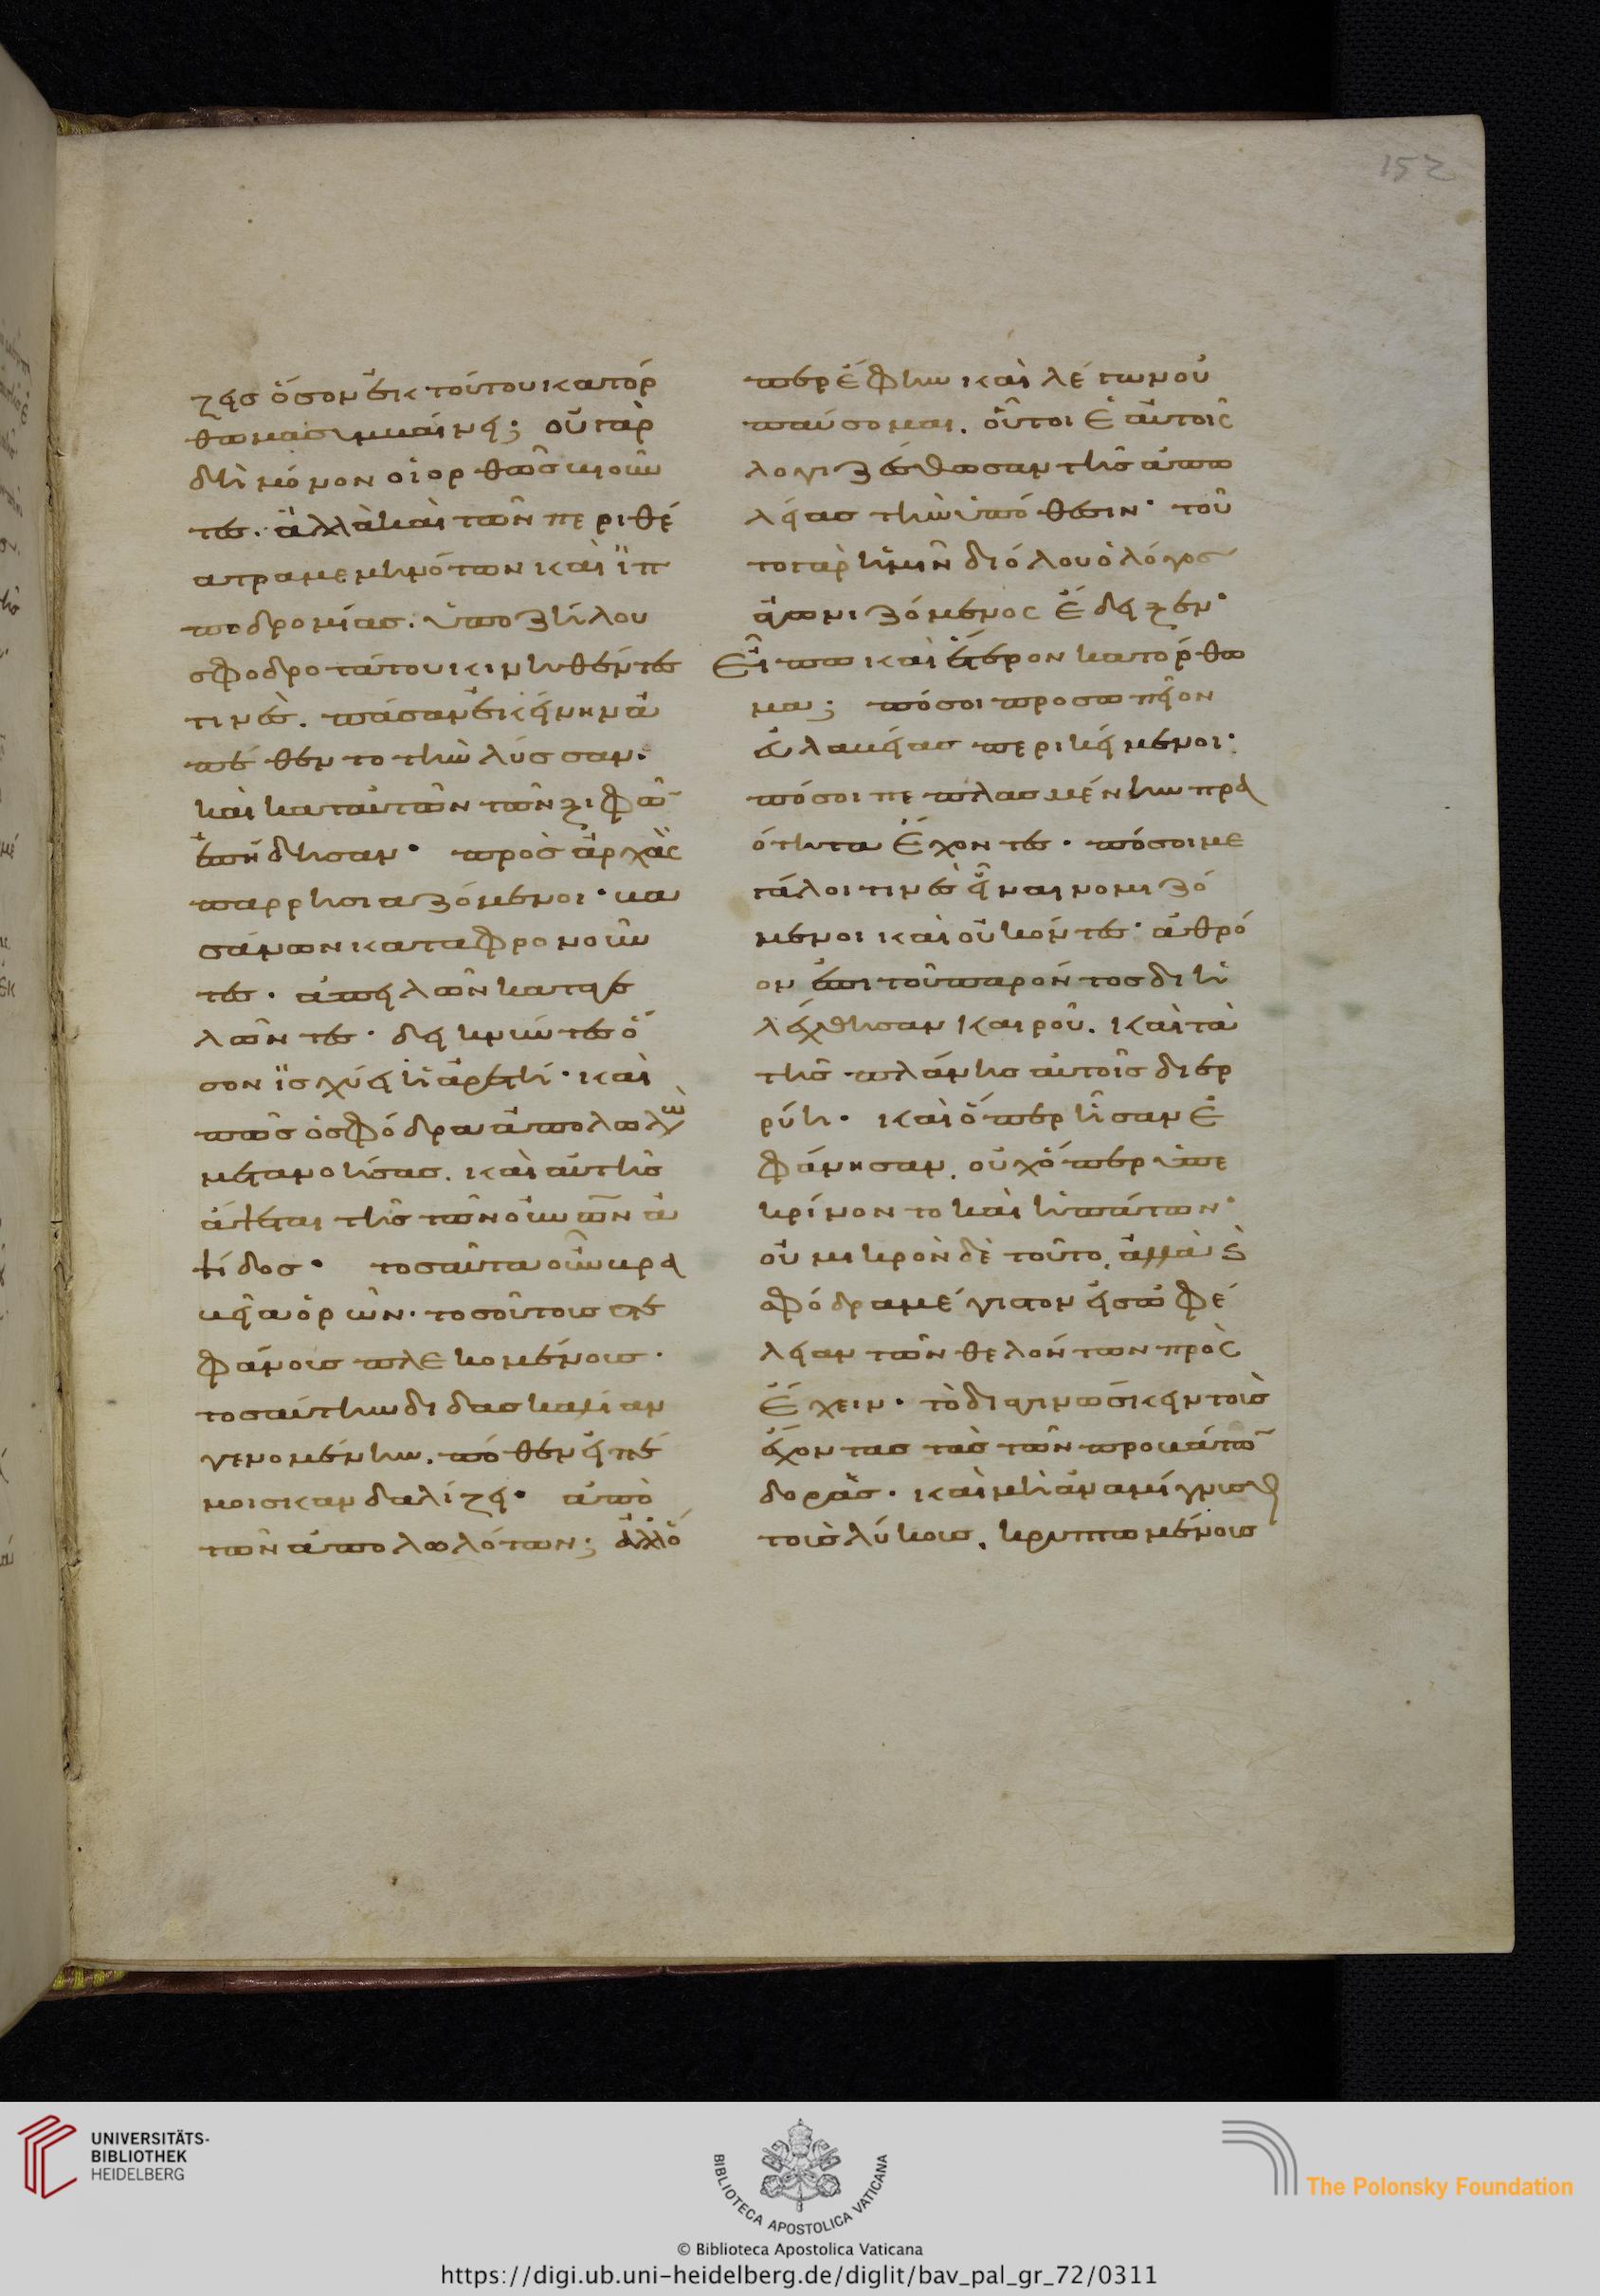 ξεις ὅσον ἐκ τούτου κατόρ
θωμα συμβαίνει; οὐ γὰρ
δὴ μόνον οἱ ὀρθῶς βιοῦν
τες. ἀλλὰ καὶ τῶν περὶ θέ
ατρα μεμηνότων καὶ ἱπ
ποδρομίας. ὑπὸ ζήλου
σφοδροτάτου κινηθέντες
τινὲς. πᾶσαν ἐκείνην ἀ
πέθεντο τὴν λύσσαν.
καὶ κατ αὐτῶν τῶν ξιφῶ
ἐπήδησαν· πρὸς ἀρχὰς
παρρησιαζόμενοι· βα
σάνων καταφρονοῦν
τες. ἀπειλῶν καταγε
λῶντες· δεικνύντες ὅ
σον ἰσχύει ἡ ἀρετή· καὶ
πῶς ὁ σφόδρα ἀπολωλὼ
μετανοήσας. καὶ αὐτῆς
ἅπτεται τῆς τῶν οὐνῶν ἁ
ψίδος· τοσαῦτα οὖν βρα
βεῖα ὁρῶν. τοσούτους στε
φάνους πλεκομένους.
τοσαύτην διδασκαλίαν
γινομένην. πόθεν εἰπέ
μοι σκανδαλίζει· ἀπὸ
τῶν ἀπολωλότων; ἀλλ ὅ
περ ἔφην καὶ λέγων οὐ
παύσομαι. οὗτοι ἑαυτοῖς
λογιζέσθωσαν τῆς ἀπω
λείας τὴν ὑπόθεσιν· τοῦ
το γὰρ ἡμῖν διόλου ὁ λόγος
ἀγωνιζόμενος ἔδειξεν·
Εἴπω καὶ ἕτερον κατόρθω
μα; πόσοι προσωπεῖον
εὐλαβείας περικείμενοι·
πόσοι πεπλασμένην πρα
ότητα ἔχοντες. πόσοι με
γάλοι τινὲς εἶναι νομιζό
μενοι καὶ οὐκ ὄντες· ἀθρό
ον ἐπὶ τοῦ παρόντος διη
λέγχθησαν καιροῦ. καὶ τὰ
τῆς πλάνης αὐτοῖς διερ
ρύη· καὶ ὅπερ ἦσαν ἐ
φάνησαν. οὐχ ὅπερ ὑπε
κρίνοντο καὶ ἠπάτων·
οὐ μικρὸν δὲ τοῦτο, ἀλλὰ σ
φόδρα μέγιστον εἰς ὠφέ
λειαν τῶν θελόντων προσ
έχειν. τὸ διαγινώσκειν τοὺς
ἔχοντας τὰς τῶν προβάτω
δορὰς. καὶ μὴ ἀναμίγνυσθαι
τοὺς λύκους. κρυπτωμένους
152
UNIVERSITÄTS-
BIBLIOTHEK
HEIDELBERG
BIBLIOTECA APOSTOLICA VATICANA
The Polonsky Foundation
© Biblioteca Apostolica Vaticana
https://digi.ub.uni-heidelberg.de/diglit/bav_pal_gr_72/0311